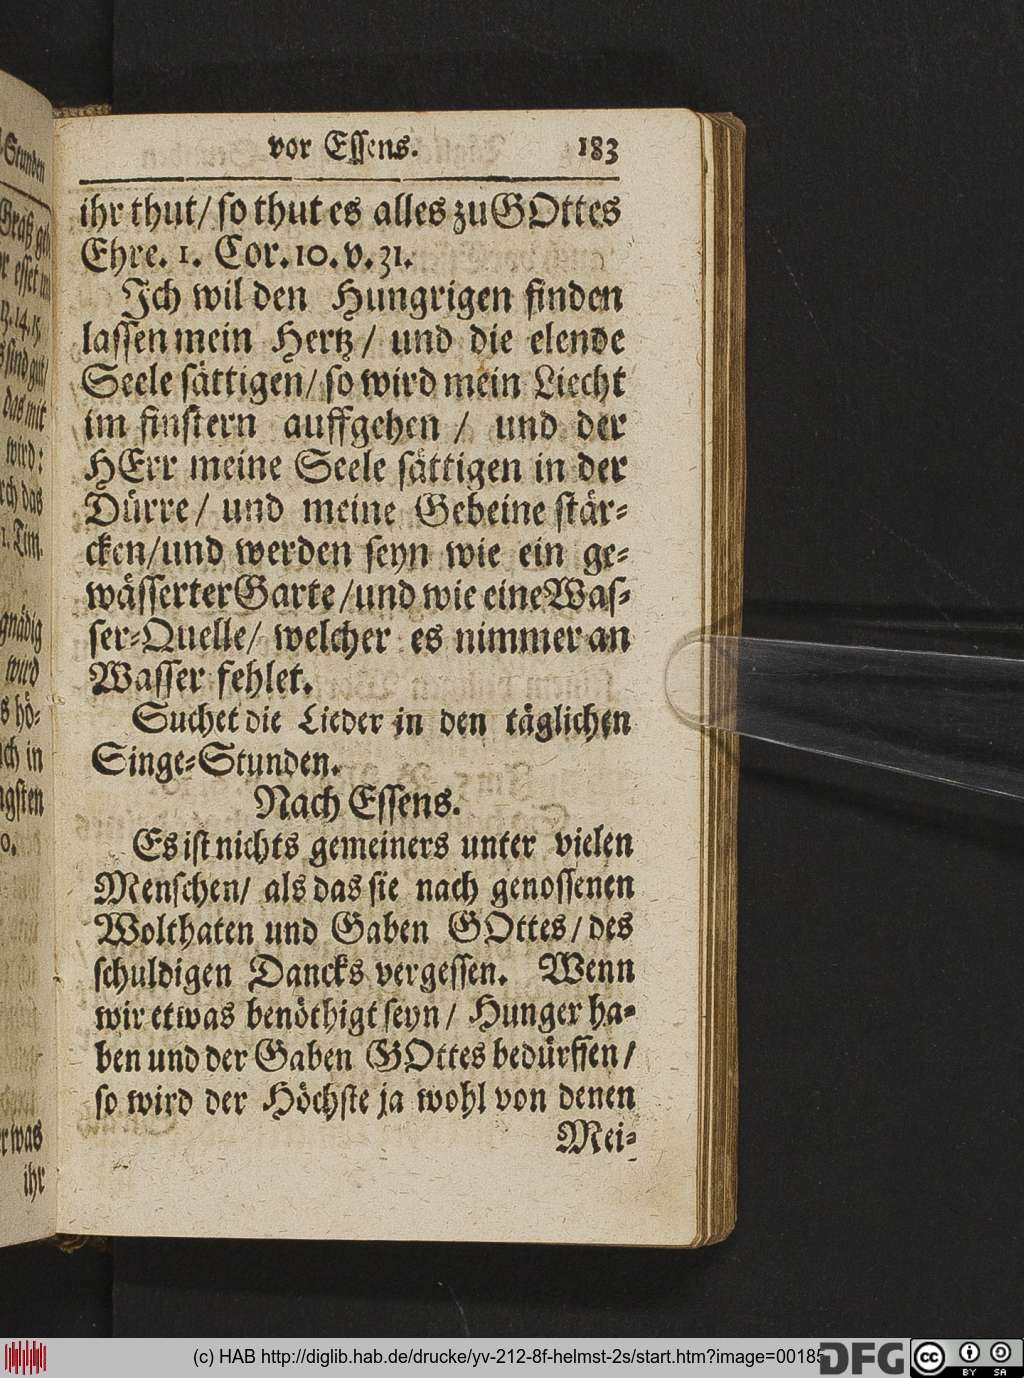 vor Essens. 183
ihr thut/ so thut es alles zu GOttes
Ehre. 1. Cor. 10. v. 31.
Ich wil den Hungrigen finden
lassen mein Hertz/ und die elende
Seele sättigen/ so wird mein Liecht
im finstern auffgehen / und der
HErr meine Seele sättigen in der
Dürre/ und meine Gebeine stär-
cken/und werden seyn wie ein ge-
wässerter Garte/und wie eine Was-
ser-Quelle/ welcher es nimmer an
Wasser fehlet.
Suchet die Lieder in den täglichen
Singe-Stunden.
Nach Essens.
Es ist nichts gemeiners unter vielen
Menschen/ als das sie nach genossenen
Wolthaten und Gaben GOttes/ des
schuldigen Dancks vergessen. Wenn
wir etwas benöthigt seyn/ Hunger ha-
ben und der Gaben GOttes bedürffen/
so wird der Höchste ja wohl von denen
Mei-
Stunden
das mit
wird:
das
1. Tim.
gnädig
wird
hö-
in
was
ihr
(c) HAB http://diglib.hab.de/drucke/yv-212-8f-helmst-2s/start.htm?image=00185
DFG
cc
BY SA